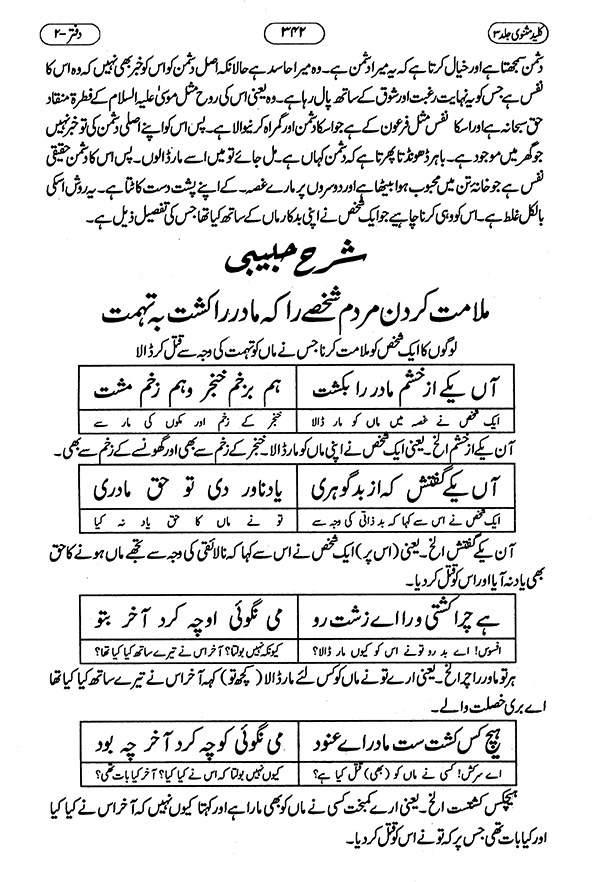 کلید مثنوی جلد۳ ۳۴۲ دفتر-۲
دشمن سمجھتا ہے اور خیال کرتا ہے کہ یہ میرا دشمن ہے۔ وہ میرا حاسد ہے حالانکہ اصل دشمن کو اس کو خبر بھی نہیں کہ وہ اس کا
نفس ہے جس کو یہ نہایت رغبت اور شوق کے ساتھ پال رہا ہے۔ وہ یعنی اس کی روح مثل موسیٰ علیہ السلام کے فطرۃً منقاد
حق سبحانہ ہے اور اسکا نفس مثل فرعون کے ہے جو اسکا دشمن اور گمراہ کرنیوالا ہے۔ پس اس کو اپنے اصلی دشمن کی تو خبر نہیں
جو گھر میں موجود ہے۔ باہر ڈھونڈتا پھرتا ہے کہ دشمن کہاں ہے۔ مل جائے تو میں اسے مار ڈالوں۔ پس اس کا دشمن حقیقی
نفس ہے جو خانہ تن میں محبوب ہوا بیٹھا ہے اور دوسروں پر مارے غصہ۔ کے اپنے پشت دست کاٹتا ہے۔ یہ روش اسکی
بالکل غلط ہے۔ اس کو وہی کرنا چاہیے جو ایک شخص نے اپنی بدکار ماں کے ساتھ کیا تھا جس کی تفصیل ذیل ہے۔
شرح حبیبی
ملامت کردن مردم شخصے را کہ مادر را کشت بہ تہمت
لوگوں کا ایک شخص کو ملامت کرنا جس نے ماں کو تہمت کی وجہ سے قتل کر ڈالا
آں یکے از خشم مادر را بکشت ہم بزخم خنجر وہم زخم مشت
ایک شخص نے غصہ میں ماں کو مار ڈالا خنجر کے زخم اور مکوں کی مار سے
آن یکے از خشم الخ۔ یعنی ایک شخص نے اپنی ماں کو مار ڈالا۔ خنجر کے زخم سے بھی اور گھونسے کے زخم سے بھی۔
آں یکے گفتش کہ از بد گوہری یاد ناور دی تو حق مادری
ایک شخص نے اس سے کہا کہ بد ذاتی کی وجہ سے تو نے ماں کا حق یاد نہ کیا
آن یکے گفتش الخ۔ یعنی (اس پر) ایک شخص نے اس سے کہا کہ نالائقی کی وجہ سے تجھے ماں ہونے کا حق
بھی یاد نہ آیا اور اس کو قتل کر دیا۔
ہے چرا کشتی ورا اے زشت رو می نگوئی اوچہ کرد آخر بتو
افسوس! اے بد رو تو نے اس کو کیوں مار ڈالا؟ کیونکہ نہیں بولتا؟ آخر اس نے تیرے ساتھ کیا کیا تھا؟
ہر تو مادر را چرا الخ۔ یعنی ارے تو نے ماں کو کس لئے مار ڈالا (کچھ تو) کہہ آخر اس نے تیرے ساتھ کیا کیا تھا
اے بری خصلت والے۔
ہیچ کس کشت ست مادر اے عنود می نگوئی کوچہ کرد آخر چہ بود
اے سرکش! کسی نے ماں کو (بھی) قتل کیا ہے؟ کیوں نہیں بولتا کہ اس نے کیا کیا؟ آخر کیا بات تھی؟
ہیچکس کشتست الخ۔ یعنی ارے کمبخت کسی نے ماں کو بھی مارا ہے اور کہتا کیوں نہیں کہ آخر اس نے کیا کیا
اور کیا بات تھی جس پر کہ تو نے اس کو قتل کر دیا۔